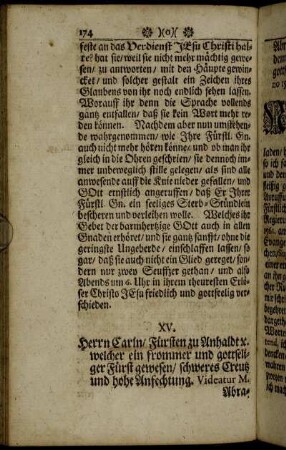 174 )(o)(
feste an das Verdienst JEsu Christi hal-
te? hat sie/ weil sie nicht mehr mächtig gewe-
sen/ zu antworten/ mit den Häupte gewin-
cket/ und solcher gestalt ein Zeichen ihres
Glaubens von ihr noch endlich sehen lassen.
Worauff ihr denn die Sprache vollends
gantz entfallen/ daß sie kein Wort mehr re-
den können. Nachdem aber nun umstehen-
de wahrgenommen/ wie Ihre Fürstl. Gn.
auch nicht mehr hören könne/ und ob man ihr
gleich in die Ohren geschrien/ sie dennoch im-
mer unbeweglich stille gelegen/ als sind alle
anwesende auff die Knie nieder gefallen/ und
GOtt ernstlich angeruffen/ daß Er Ihrer
Fürstl. Gn. ein seeliges Sterb-Stündlein
bescheren und verleihen wolle. Welches ihr
Geber der barmhertzige GOtt auch in allen
Gnaden erhöret/ und sie gantz sanfft/ ohne die
geringste Ungeberde/ einschlaffen lassen/ so
gar/ daß sie auch nicht ein Glied gereget/ son-
dern nur zwey Seuffzer gethan/ und also
Abends um 6. Uhr in ihrem theuresten Erlö-
ser Christo JEsu friedlich und gottseelig ver-
schieden.
XV.
Herrn Carln/ Fürsten zu Anhalt x.
welcher ein frommer und gottseli-
ger Fürst gewesen/ schweres Creutz
und hohe Anfechtung. Videatur M.
Abra-